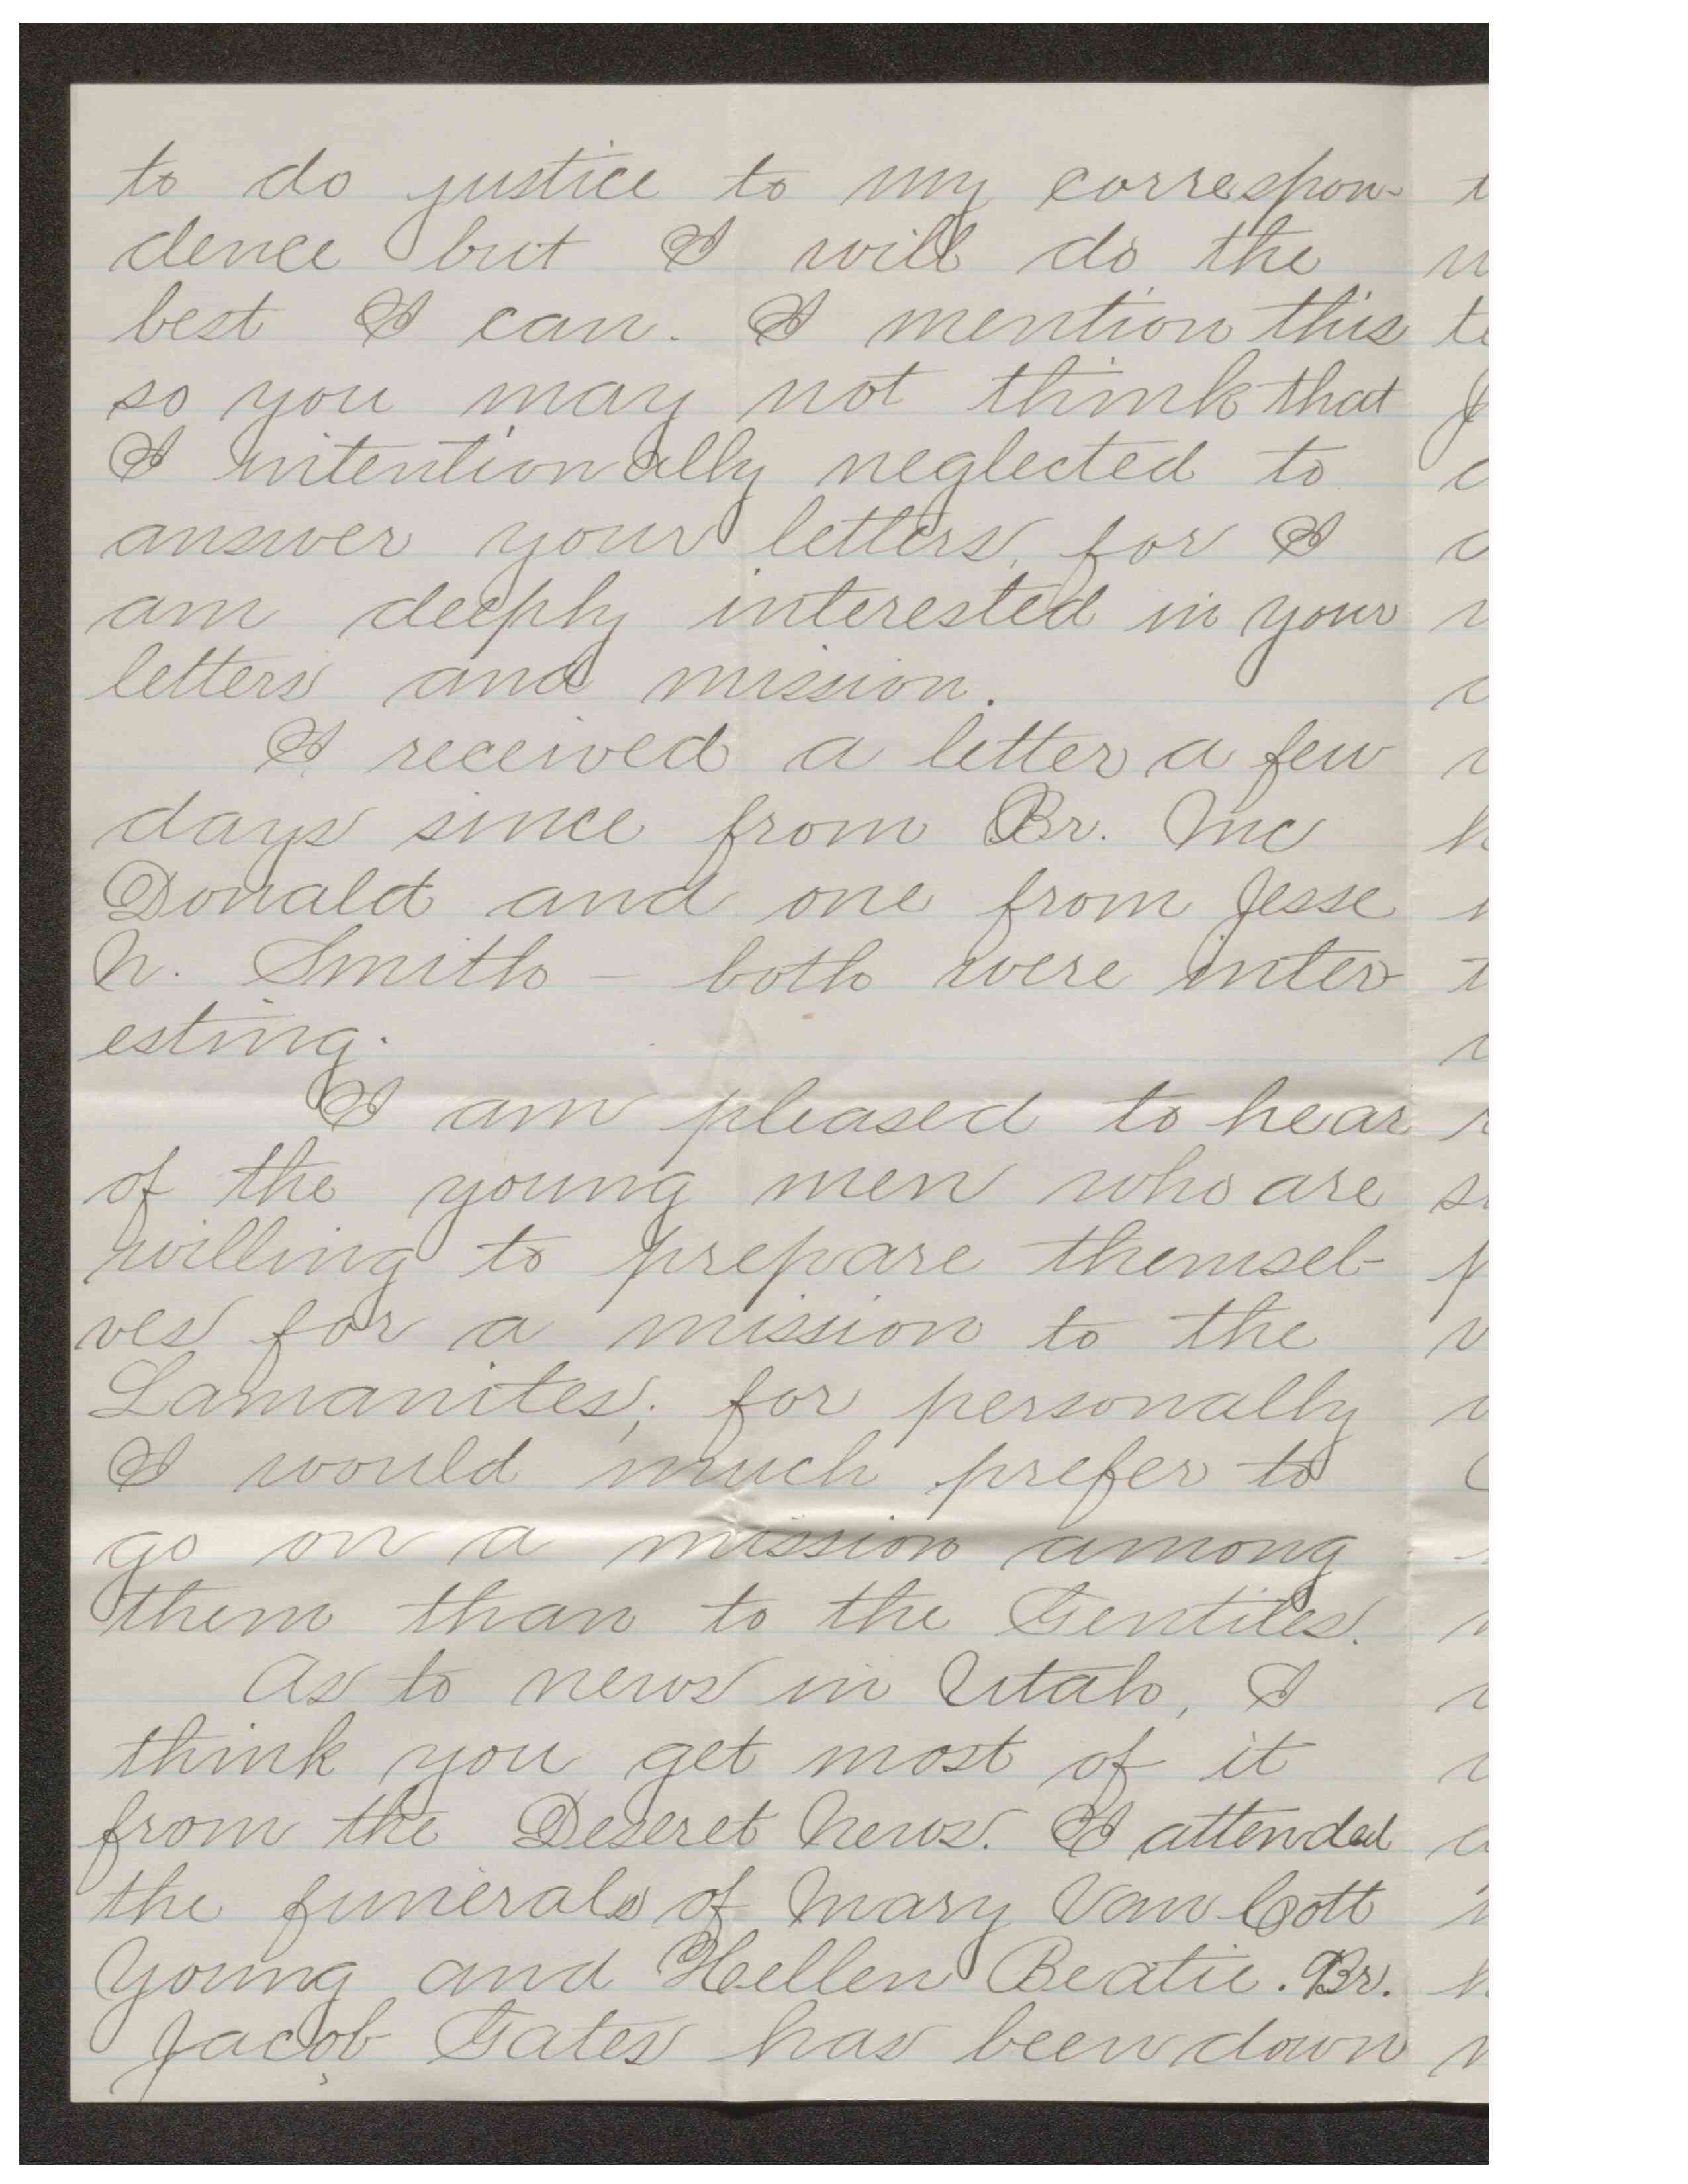 to do justice to my correspon-
dence but I will do the
best I can. I mention this
so you may not think that
I intentionally neglected to
answer your letters, for I
am deeply interested in your
letters and mission.
I received a letter a few
days since from Br. Mc
Donald and one from Jesse
N. Smith - both were inter
esting.
I am pleased to hear
of the young men who are
willing to prepare themsel-
ves for a mission to the
Lamanites; for personally
I would much prefer to
go on a mission among
them than to the Gentiles.
As to news in Utah, I
think you get most of it
from the Deseret News. I attended
the funerals of Mary Van Cott
Young and Hellen Beatie. Br.
Jacob Gates has been down